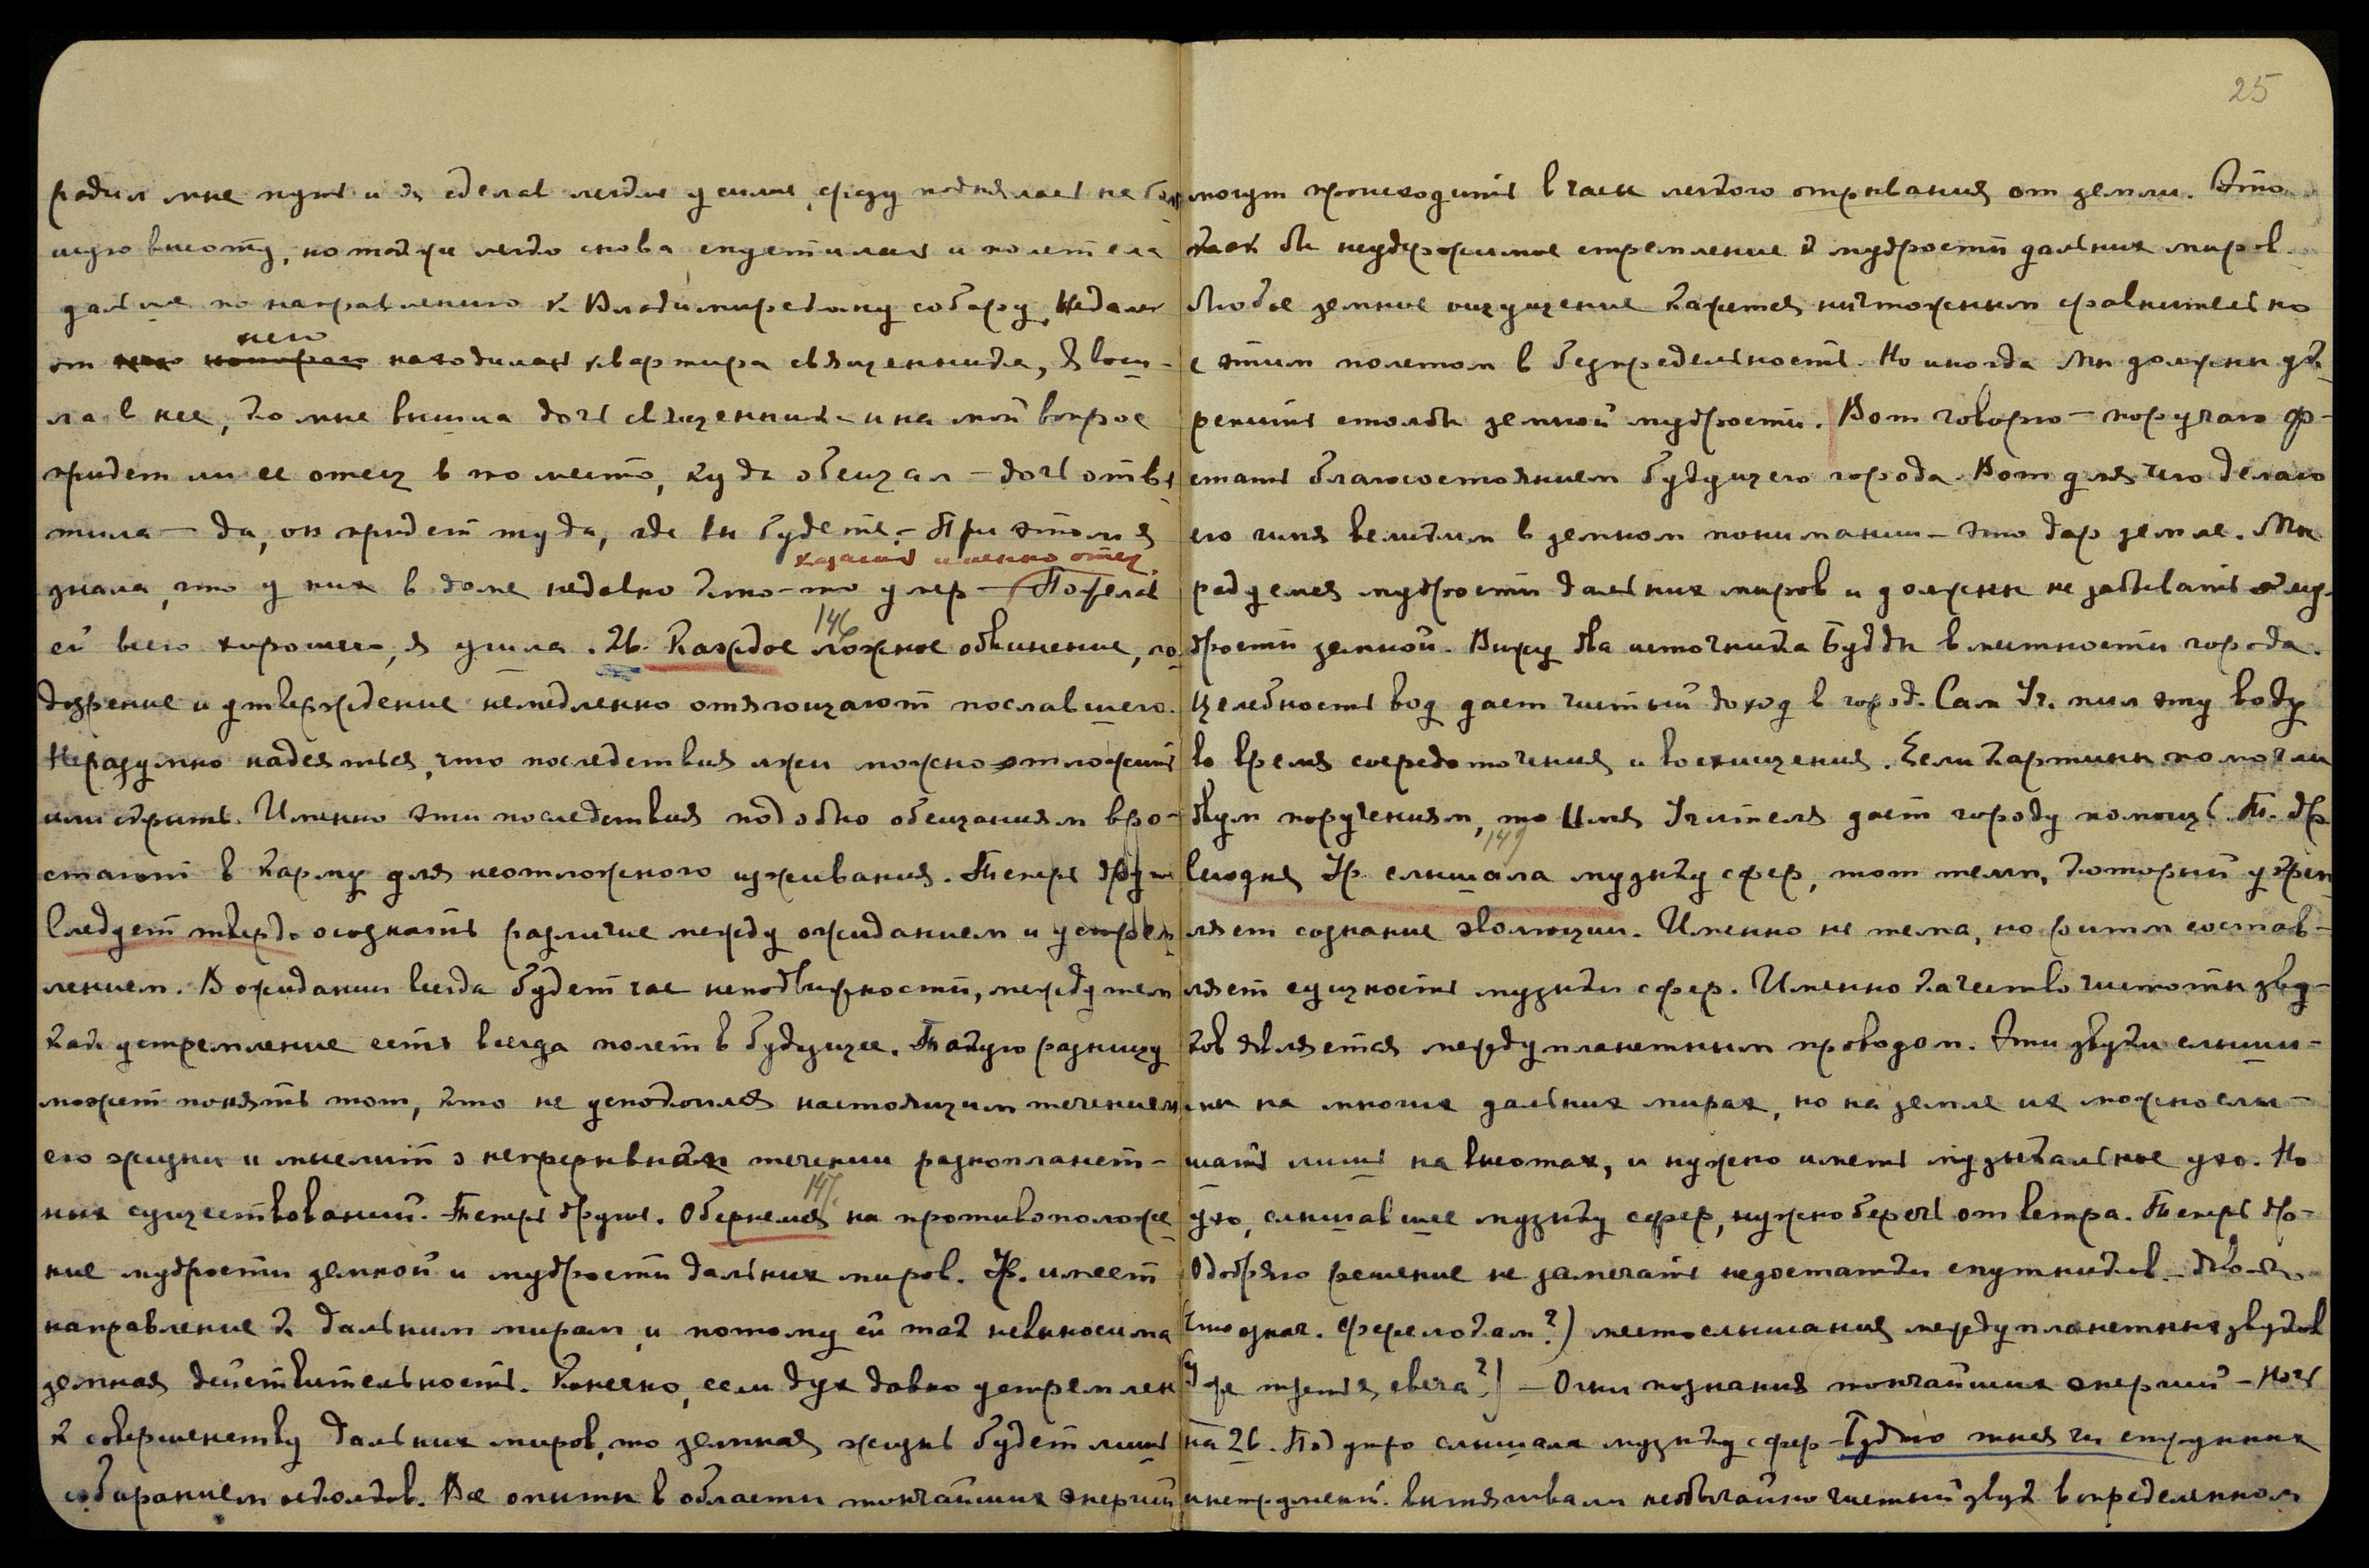 25
родил мне путь и я, сделав легкое усилие, сразу поднялась на боль
шую высоту, но также легко снова опустилась и полетела
дальше по направлению к Владимирскому собору. Недалеко
от него находилась квартира священника, я вош-
ла в нее, ко мне вышла дочь священника и на мой вопрос
придет ли ее отец в то место, куда обещал – дочь отве
тила – да, он придет туда, где вы будете. – При этом я
кажется именно отец.
знала, что у них в доме недавно кто-то умер – Пожелав
146
ей всего хорошего, я ушла. 26. Каждое ложное обвинение, по
дозрение и утверждение немедленно отягощают пославшего.
Неразумно надеяться, что последствия лжи можно отложить
или скрыть. Именно эти последствия подобно обещаниям вро-
стают в карму для неотложного изживания. Теперь другое
Следует твердо осознать различие между ожиданием и устрем
лением. В ожидании всегда будет час неподвижности, между тем
как устремление есть всегда полет в будущее. Такую разницу
может понять тот, кто не успокоился настоящим течением
его жизни и мыслит о непрерывном течении разнопланет-
147.
ных существований. Теперь другое. Обернемся на противоположе
ние мудрости земной и мудрости дальних миров. Ур. имеет
направление к дальним мирам, и потому ей так невыносима
земная действительность. Конечно, если дух давно устремлен
к совершенству дальних миров, то земная жизнь будет лишь
собиранием осколков. Все опыты в области тончайших энергий
могут происходить в часы легкого отрывания от земли. Это
как бы неудержимое стремление к мудрости дальних миров
Любое земное ощущение кажется ничтожным сравнительно
с этим полетом в беспредельность. Но иногда Мы должны ук
репить столбы земной мудрости. Вот говорю – поручаю Ф-
стать благосостоянием будущего города. Вот для чего делаю
его имя великим в земном понимании – это дар земле. Мы
радуемся мудрости дальних миров и должны не забывать о му
дрости земной. Вижу два источника Будды в местности города.
Целебность вод дает чистый доход в город. Сам Уч. пил эту воду
во время сосредоточения и восхищения. Если картины помогли
двум поручениям, то Имя Учителя дает городу помощь. Т. др
149
Сегодня Ур. слышала музыку сфер, тот темп, который укреп
ляет сознание эволюции. Именно не тема, но ритм состав-
ляет сущность музыки сфер. Именно качество чистоты зву-
ков является междупланетным проводом. Эти звуки слыши-
мы на многих дальних мирах, но на земле их можно слы-
шать лишь на высотах, и нужно иметь музыкальное ухо. Но
ухо, слышавшее музыку сфер, нужно беречь от ветра. Теперь др-
Одобряю решение не замечать недостатки спутников –
(что означ. ?) место слышания междупланетных звуков
(Уже третья свеча?) – Огни познания тончайших энергий – Ночь
на 26. Под утро слышала музыку сфер – Будто тысячи струнных
инструмент. вытягивали необычайно чистый звук в определенном